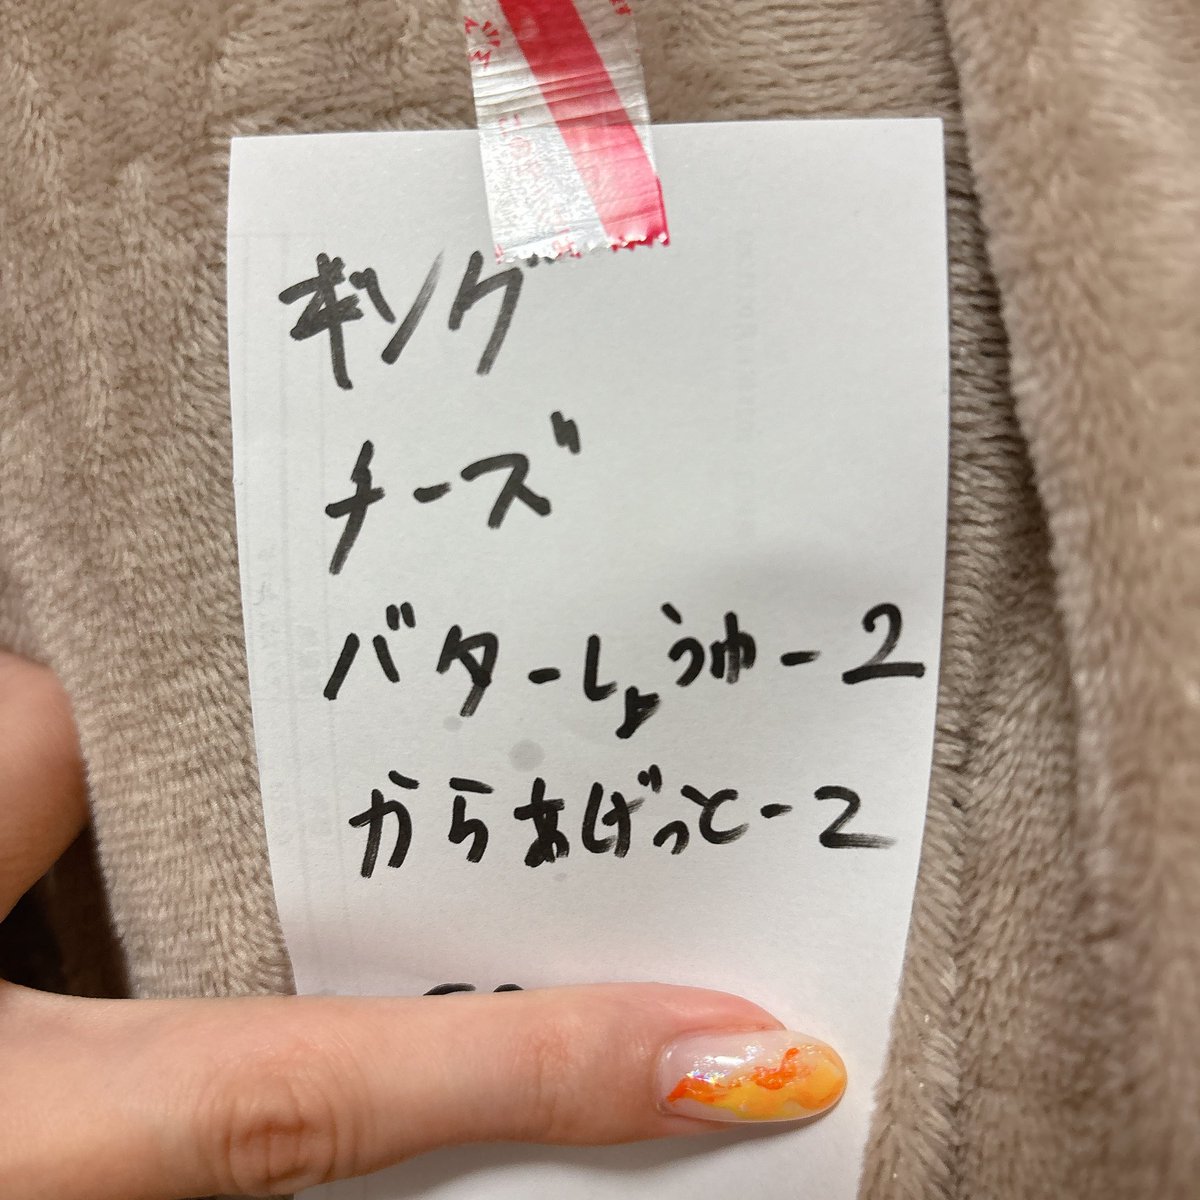 ギング
チーズ
バターしょうゆー2
からあげっとー2